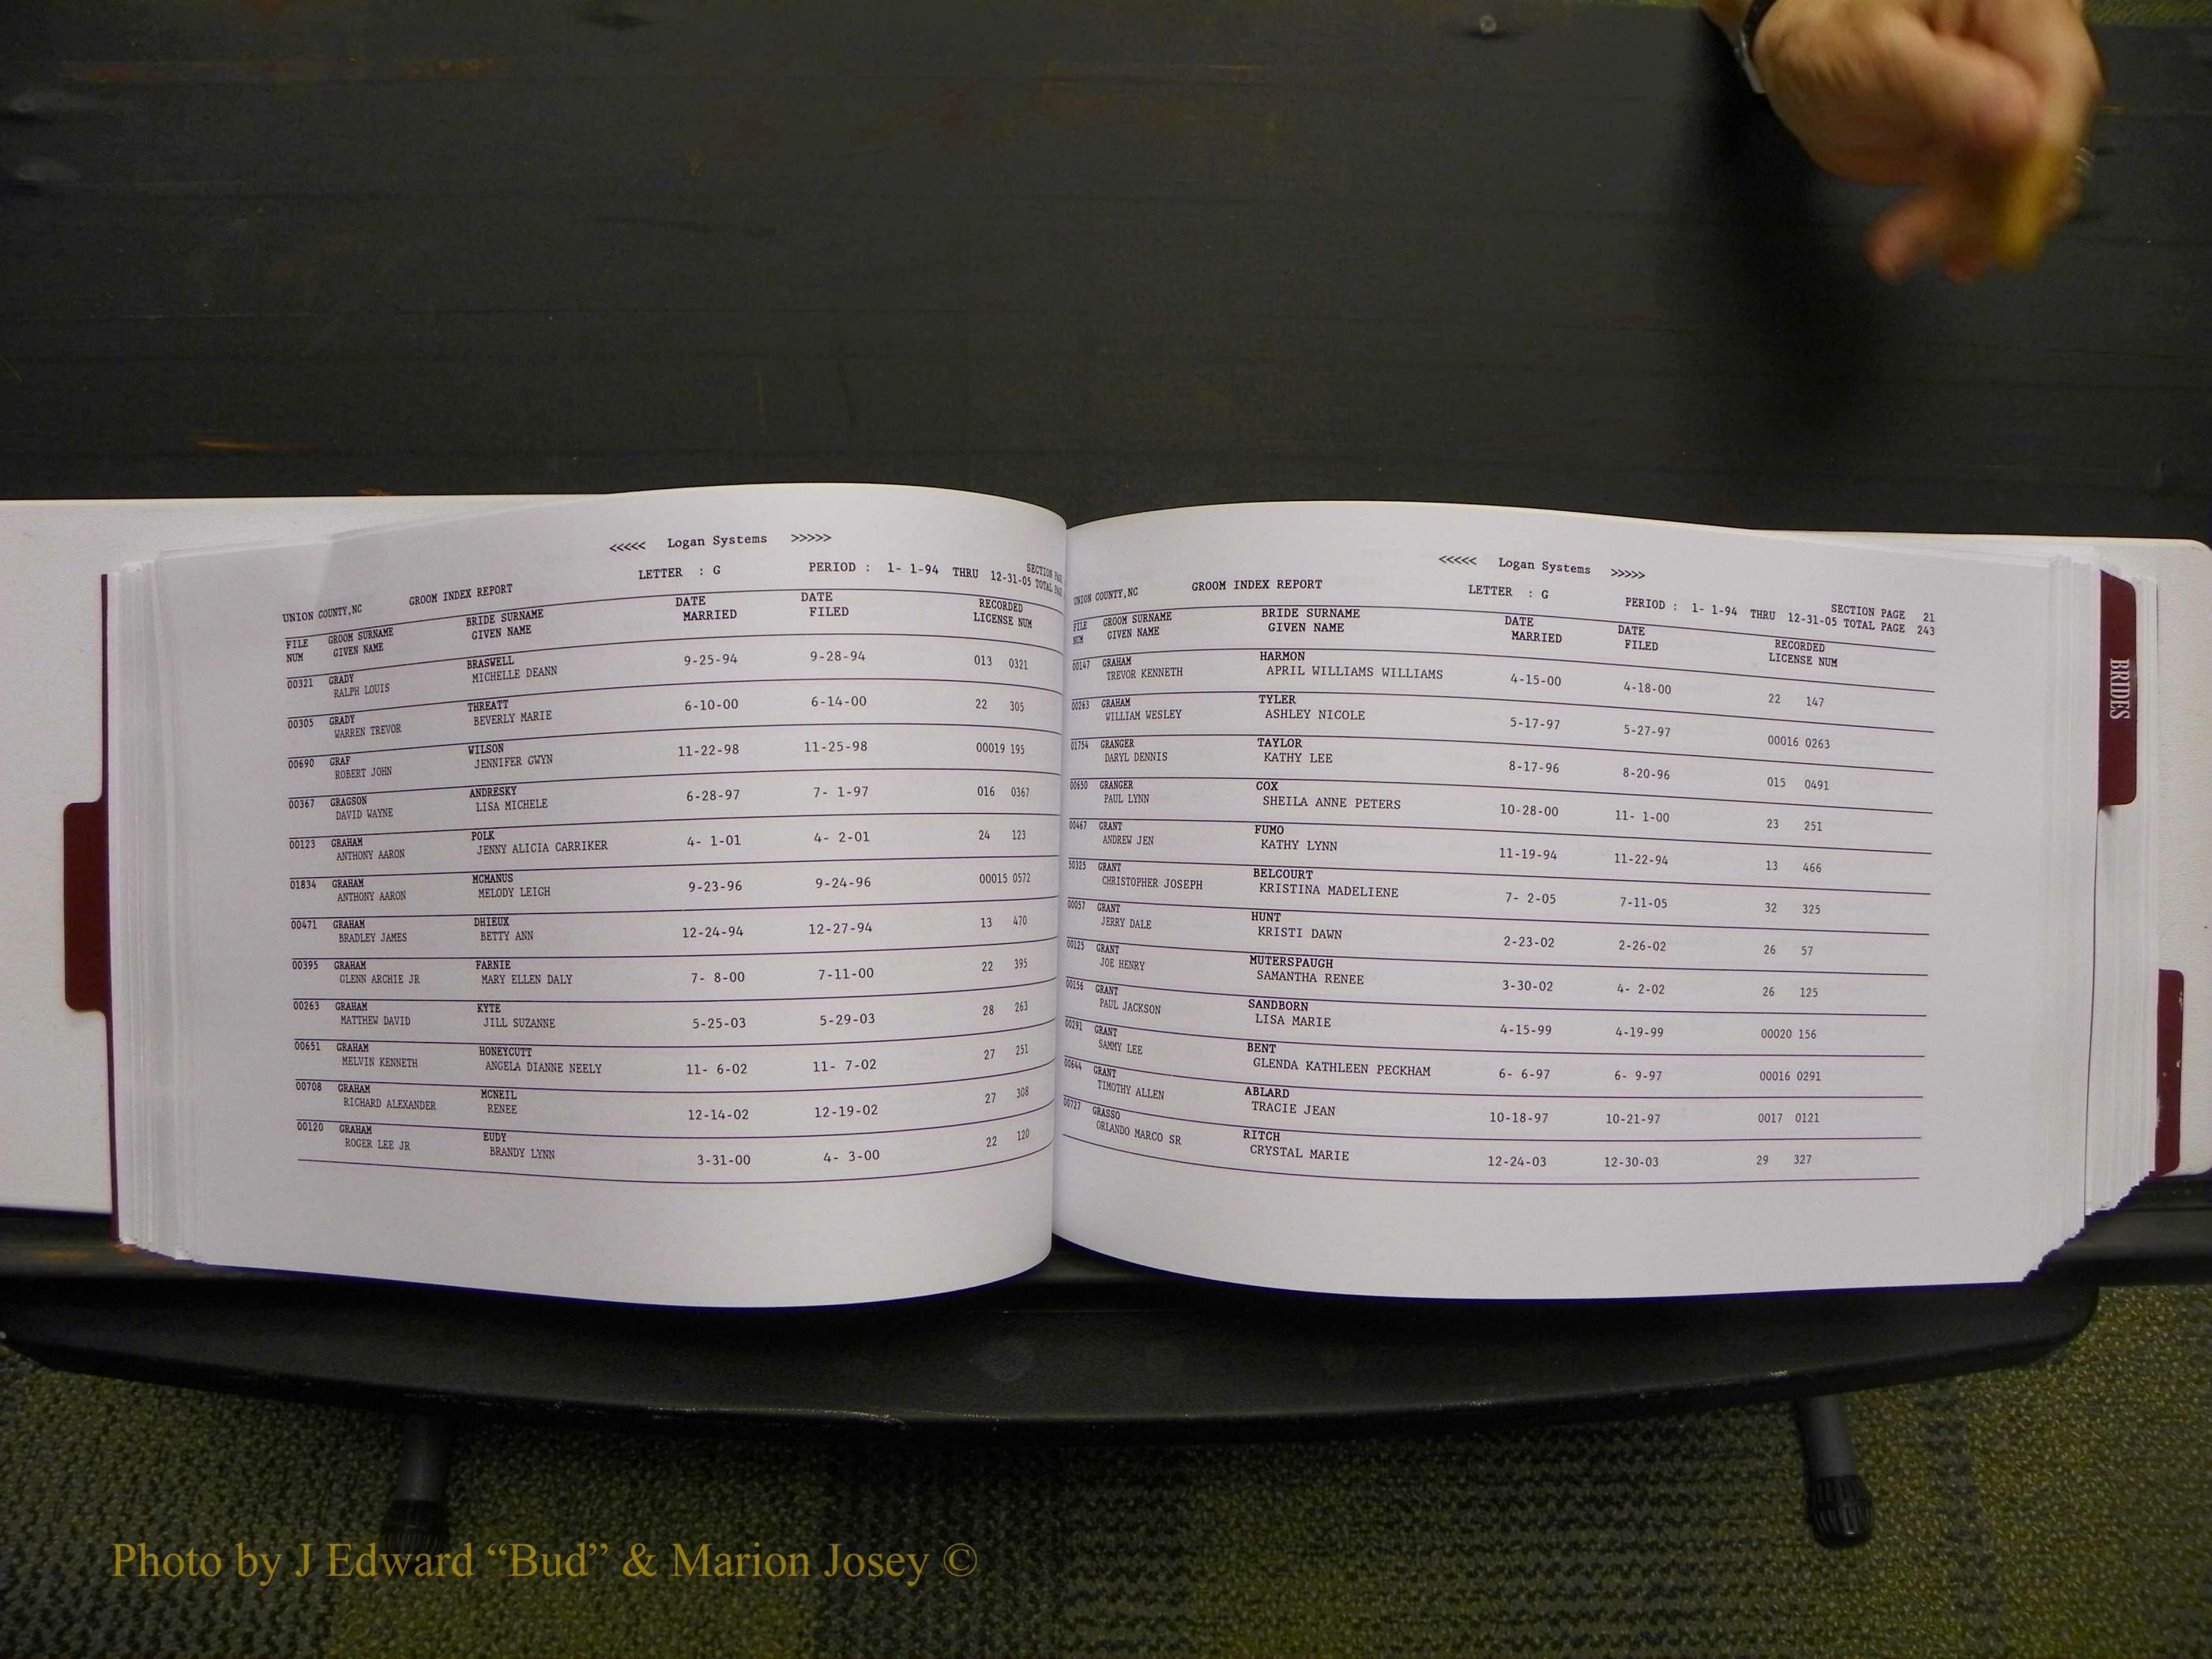 <<<<< Logan Systems >>>>>
UNION COUNTY,NC GROOM INDEX REPORT LETTER : G PERIOD : 1- 1-94 THRU 12-31-05 SECTION
TOTAL
FILE GROOM SURNAME BRIDE SURNAME DATE DATE RECORDED
NUM GIVEN NAME GIVEN NAME MARRIED FILED LICENSE NUM
00321 GRADY BRASWELL 9-25-94 9-28-94 013 0321
RALPH LOUIS MICHELLE DEANN
00305 GRADY THREATT 6-10-00 6-14-00 22 305
WARREN TREVOR BEVERLY MARIE
00690 GRAF WILSON 11-22-98 11-25-98 00019 195
ROBERT JOHN JENNIFER GWYN
00367 GRAGSON ANDRESKY 6-28-97 7- 1-97 016 0367
DAVID WAYNE LISA MICHELE
00123 GRAHAM POLK 4- 1-01 4- 2-01 24 123
ANTHONY AARON JENNY ALICIA CARRIKER
01834 GRAHAM MCMANUS 9-23-96 9-24-96 00015 0572
ANTHONY AARON MELODY LEIGH
00471 GRAHAM DHIEUX 12-24-94 12-27-94 13 470
BRADLEY JAMES BETTY ANN
00395 GRAHAM FARNIE 7- 8-00 7-11-00 22 395
GLENN ARCHIE JR MARY ELLEN DALY
00263 GRAHAM KYTE 5-25-03 5-29-03 28 263
MATTHEW DAVID JILL SUZANNE
00651 GRAHAM HONEYCUTT 11- 6-02 11- 7-02 27 251
MELVIN KENNETH ANGELA DIANNE NEELY
00708 GRAHAM MCNEIL 12-14-02 12-19-02 27 308
RICHARD ALEXANDER RENEE
00120 GRAHAM EUDY 3-31-00 4- 3-00 22 120
ROGER LEE JR BRANDY LYNN
<<<<< Logan Systems >>>>>
UNION COUNTY,NC GROOM INDEX REPORT LETTER : G PERIOD : 1- 1-94 THRU 12-31-05 SECTION PAGE 21
TOTAL PAGE 243
FILE GROOM SURNAME BRIDE SURNAME DATE DATE RECORDED
NUM GIVEN NAME GIVEN NAME MARRIED FILED LICENSE NUM
00147 GRAHAM HARMON 4-15-00 4-18-00 22 147
TREVOR KENNETH APRIL WILLIAMS WILLIAMS
00263 GRAHAM TYLER 5-17-97 5-27-97 00016 0263
WILLIAM WESLEY ASHLEY NICOLE
01754 GRANGER TAYLOR 8-17-96 8-20-96 015 0491
DARYL DENNIS KATHY LEE
00650 GRANGER COX 10-28-00 11- 1-00 23 251
PAUL LYNN SHEILA ANNE PETERS
00467 GRANT FUMO 11-19-94 11-22-94 13 466
ANDREW JEN KATHY LYNN
50325 GRANT BELCOURT 7- 2-05 7-11-05 32 325
CHRISTOPHER JOSEPH KRISTINA MADELIENE
00057 GRANT HUNT 2-23-02 2-26-02 26 57
JERRY DALE KRISTI DAWN
00125 GRANT MUTERSPAUGH 3-30-02 4- 2-02 26 125
JOE HENRY SAMANTHA RENEE
00156 GRANT SANDBORN 4-15-99 4-19-99 00020 156
PAUL JACKSON LISA MARIE
00291 GRANT BENT 6- 6-97 6- 9-97 00016 0291
SAMMY LEE GLENDA KATHLEEN PECKHAM
00644 GRANT ABLARD 10-18-97 10-21-97 0017 0121
TIMOTHY ALLEN TRACIE JEAN
00727 GRASSO RITCH 12-24-03 12-30-03 29 327
ORLANDO MARCO SR CRYSTAL MARIE
BRIDES
Photo by J Edward “Bud” & Marion Josey ©